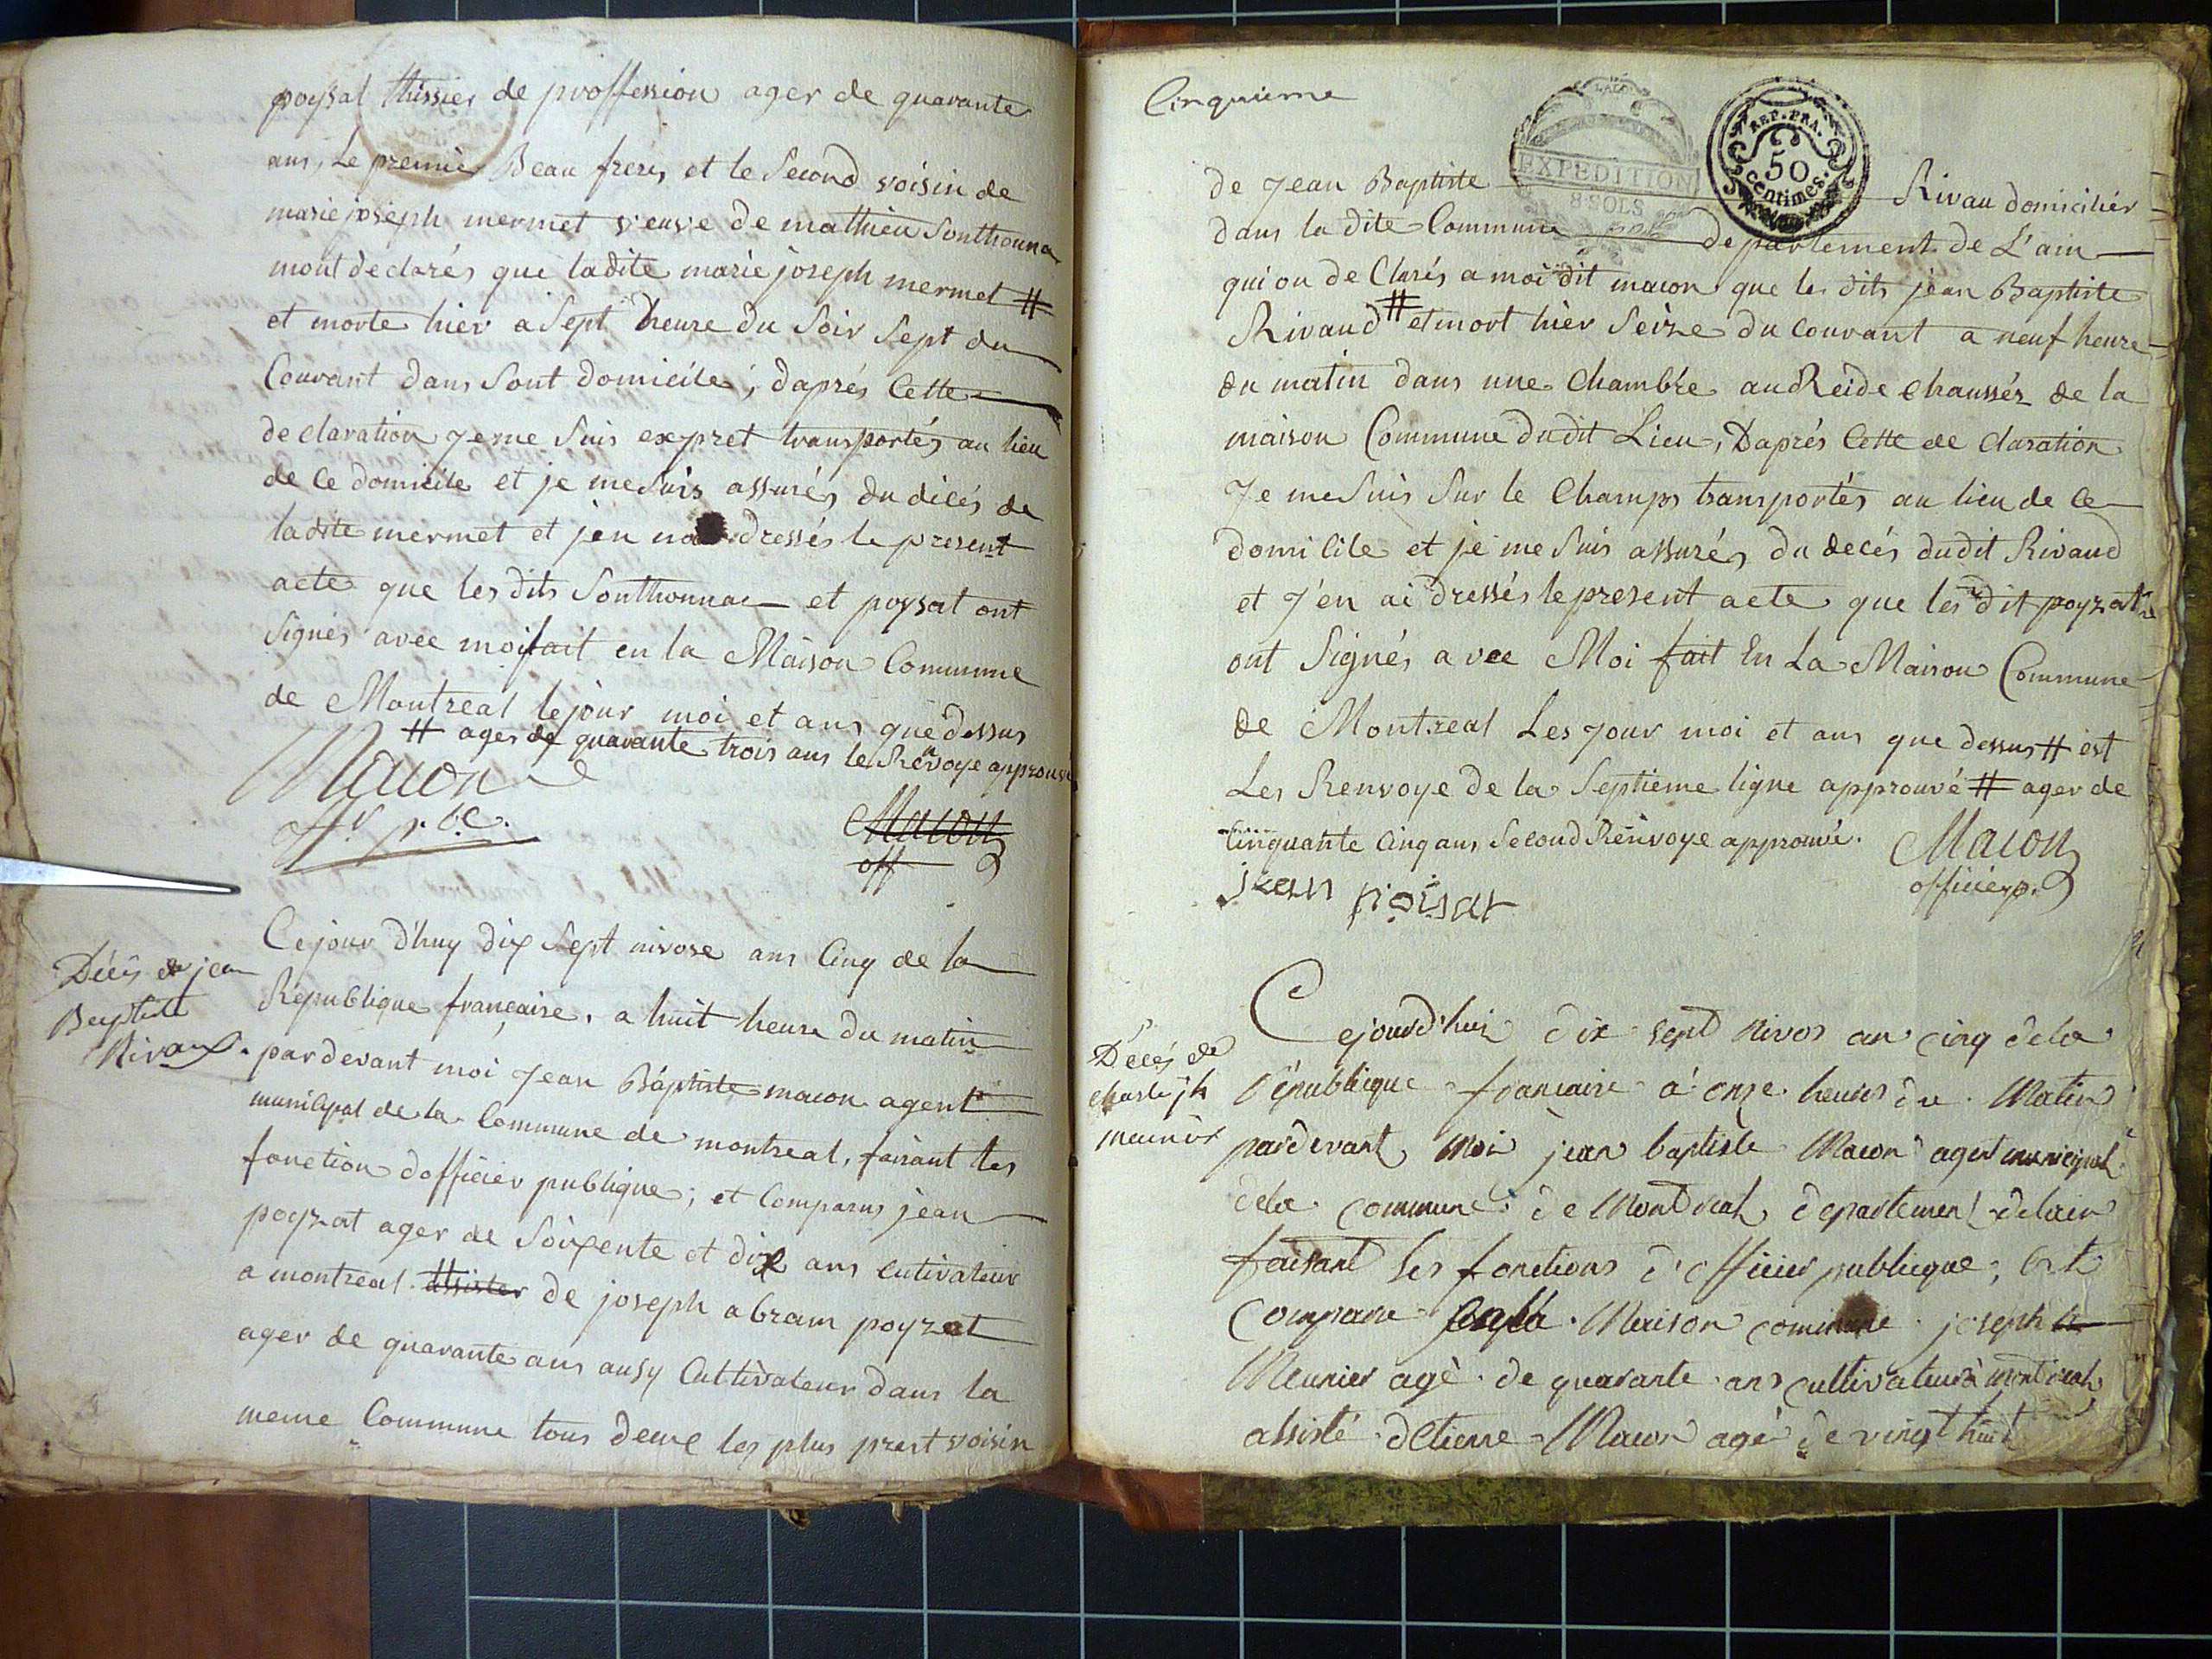 poysat thissier de proffession ager de quarante
ans, Le premier Beau frere, et le Second voisin de
marie joseph mermet veuve de mathieu Sonthonna
mont declarés que ladite marie joseph mermet #
et morte hier a Sept heure du Soir Sept du
Courant dans Sont domicile, daprés Cette
declaration Je me Suis expret transportés au lieu
de Ce domicile et je me Suis assurés du décés de
ladite mermet et jen dressés le present
acte que les dits Sonthonna et poysat ont
Signés avec moi fait en la Maison Commune
de Montreal le jour moi et ans que dessus
# ager de quarante trois ans le Renvoye approuvé
Macon
off. p.b.c.
Macon
off
Décès de jean
Baptiste
Rivaux.
Ce jour d'huy dix Sept nivose ans Cinq de la
Republique française, a huit heure du matin
pardevant moi Jean Baptiste macon agent
municipal de la Commune de montreal, faisant les
fonction dofficier publique; et Comparus jean
poyzat ager de Soixente et dix ans cutivateur
a montreal thissier de joseph abram poyzat
ager de quarante ans ausy Cultivateur dans la
meme Commune tous deux les plus prest voisin
Cinquieme
EXPEDITION
8 SOLS
REP. FRA.
50
centimes.
de Jean Baptiste Rivau domicilier
dans la dite Commune departement de L'ain
qui on de Clarés a moi dit macon que les dits jean Baptiste
Rivaud # et mort hièr Seize du Courant a neuf heure
du matin dans une Chambre au Reide Chaussér de la
maison Commune dudit Lieu, Daprés Cette de Claration
Je me Suis Sur le Champs transportés au lieu de Ce
domicile et je me Suis assurés du decés dudit Rivaud
et J'en ai dressés le present acte que les dit poyzat
ont Signés avec Moi fait En La Maison Commune
de Montreal Les Jour moi et ans que dessus # est
Les Renvoye de la Septieme ligne approuvé # ager de
Cinquante Cinq ans Second Renvoye approuvé.
Macon
officier p.
jean poisat
Décés de
charle jh
meunier
Cejourd'hui dix sept Nivos an cinq dela
République francaise à onze heures du Matin
pardevant Moi jean baptiste Macon agent municipal
dela commune de Montreal, departement delain
faisant les fonctions d'officier publicque, Est
comparu en la Maison commune joseph
Meunier agé de quarante ans cultivateur à montreal
assisté detienne Macon agé de vingt huit